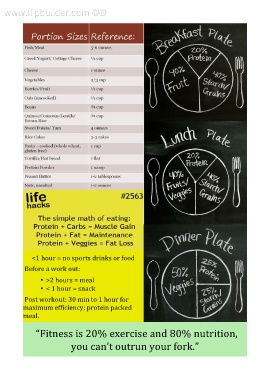 www.flipbuilder.com ©®
Portion Sizes Reference:
Fish/Meat 5-6 ounces
Greek Yogurt/ Cottage Cheese ½ cup
Cheese 1 ounce
Vegetables ½ cup
Berries/Fruit ½ cup
Oats (uncooked) ½ cup
Beans ½ cup
Quinoa/Couscous/Lentils/
Brown Rice ½ cup
Sweet Potato/ Yam 4 ounces
Rice Cakes 2-3 cakes
Pasta – cooked (whole wheat,
gluten free) 1 cup
Tortilla/Flat bread 1 flat
Protein Powder 1 scoop
Peanut Butter 1-2 tablespoons
Nuts, unsalted 1-2 ounces
life
hacks
#2563
The simple math of eating:
Protein + Carbs = Muscle Gain
Protein + Fat = Maintenance
Protein + Veggies = Fat Loss
<1 hour = no sports drinks or food
Before a work out:
• >2 hours = meal
• < 1 hour = snack
Post workout: 30 min to 1 hour for
maximum efficiency; protein packed
meal.
Breakfast Plate
20%
Protein
40%
Fruit
40%
Starch/
Grains
Lunch Plate
20%
Protein
40%
Fruits/
Veggies
40%
Starch/
Grains
Dinner Plate
25%
Protein
50%
Veggies
25%
Starch/
Grains
“Fitness is 20% exercise and 80% nutrition,
you can’t outrun your fork.”